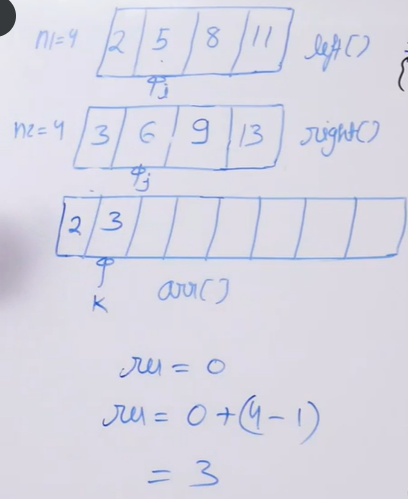 n1=4 2 5 8 11 left()
j
n2=4 3 6 9 13 right()
j
2 3
K arr()
ru = 0
ru = 0 + (4 - 1)
= 3